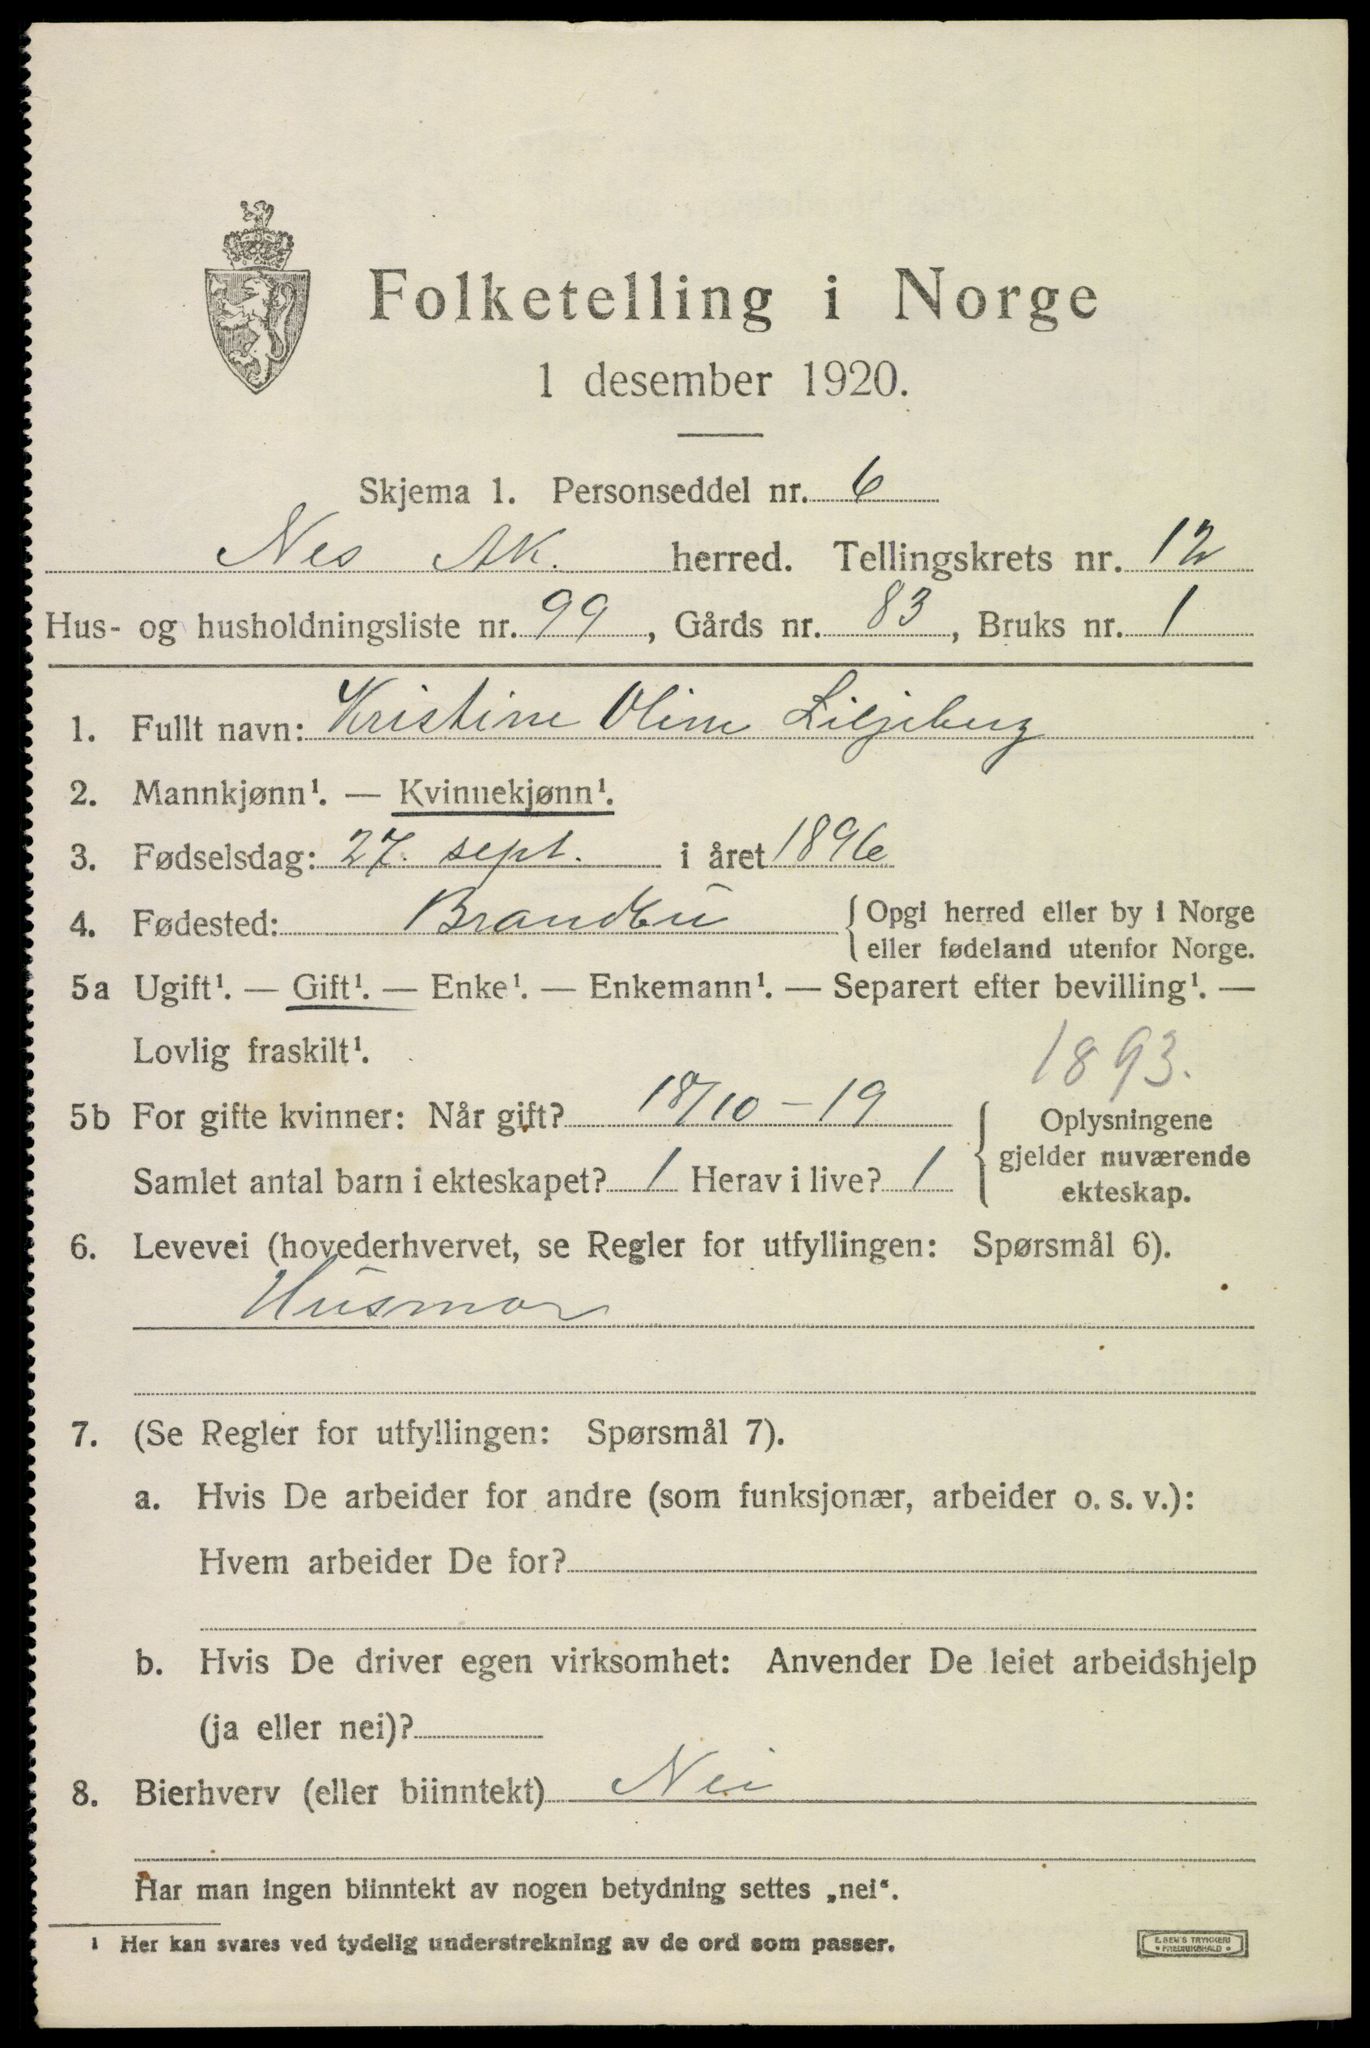 Folketelling i Norge
1 desember 1920.
Skjema 1. Personseddel nr. 6
Nes Ak. herred. Tellingskrets nr. 12
Hus- og husholdningsliste nr. 99, Gårds nr. 83, Bruks nr. 1
1. Fullt navn: Kristine Oline Liljeberg
2. Mannkjønn¹. — Kvinnekjønn¹.
3. Fødselsdag: 27. sept. i året 1896
4. Fødested: Brandbu { Opgi herred eller by i Norge
eller fødeland utenfor Norge.
5a Ugift¹. — Gift¹. — Enke¹. — Enkemann¹. — Separert efter bevilling¹. —
Lovlig fraskilt¹.
1893.
5b For gifte kvinner: Når gift? 18/10 - 19
Samlet antal barn i ekteskapet? 1 Herav i live? 1
{ Oplysningene
gjelder nuværende
ekteskap.
6. Levevei (hovederhvervet, se Regler for utfyllingen: Spørsmål 6).
Husmor
7. (Se Regler for utfyllingen: Spørsmål 7).
a. Hvis De arbeider for andre (som funksjonær, arbeider o. s. v.):
Hvem arbeider De for?
b. Hvis De driver egen virksomhet: Anvender De leiet arbeidshjelp
(ja eller nei)?
8. Bierhverv (eller biinntekt) Nei
Har man ingen biinntekt av nogen betydning settes „nei“.
¹ Her kan svares ved tydelig understrekning av de ord som passer.
E. SEM'S TRYKKERI
• FREDRIKSHALD •